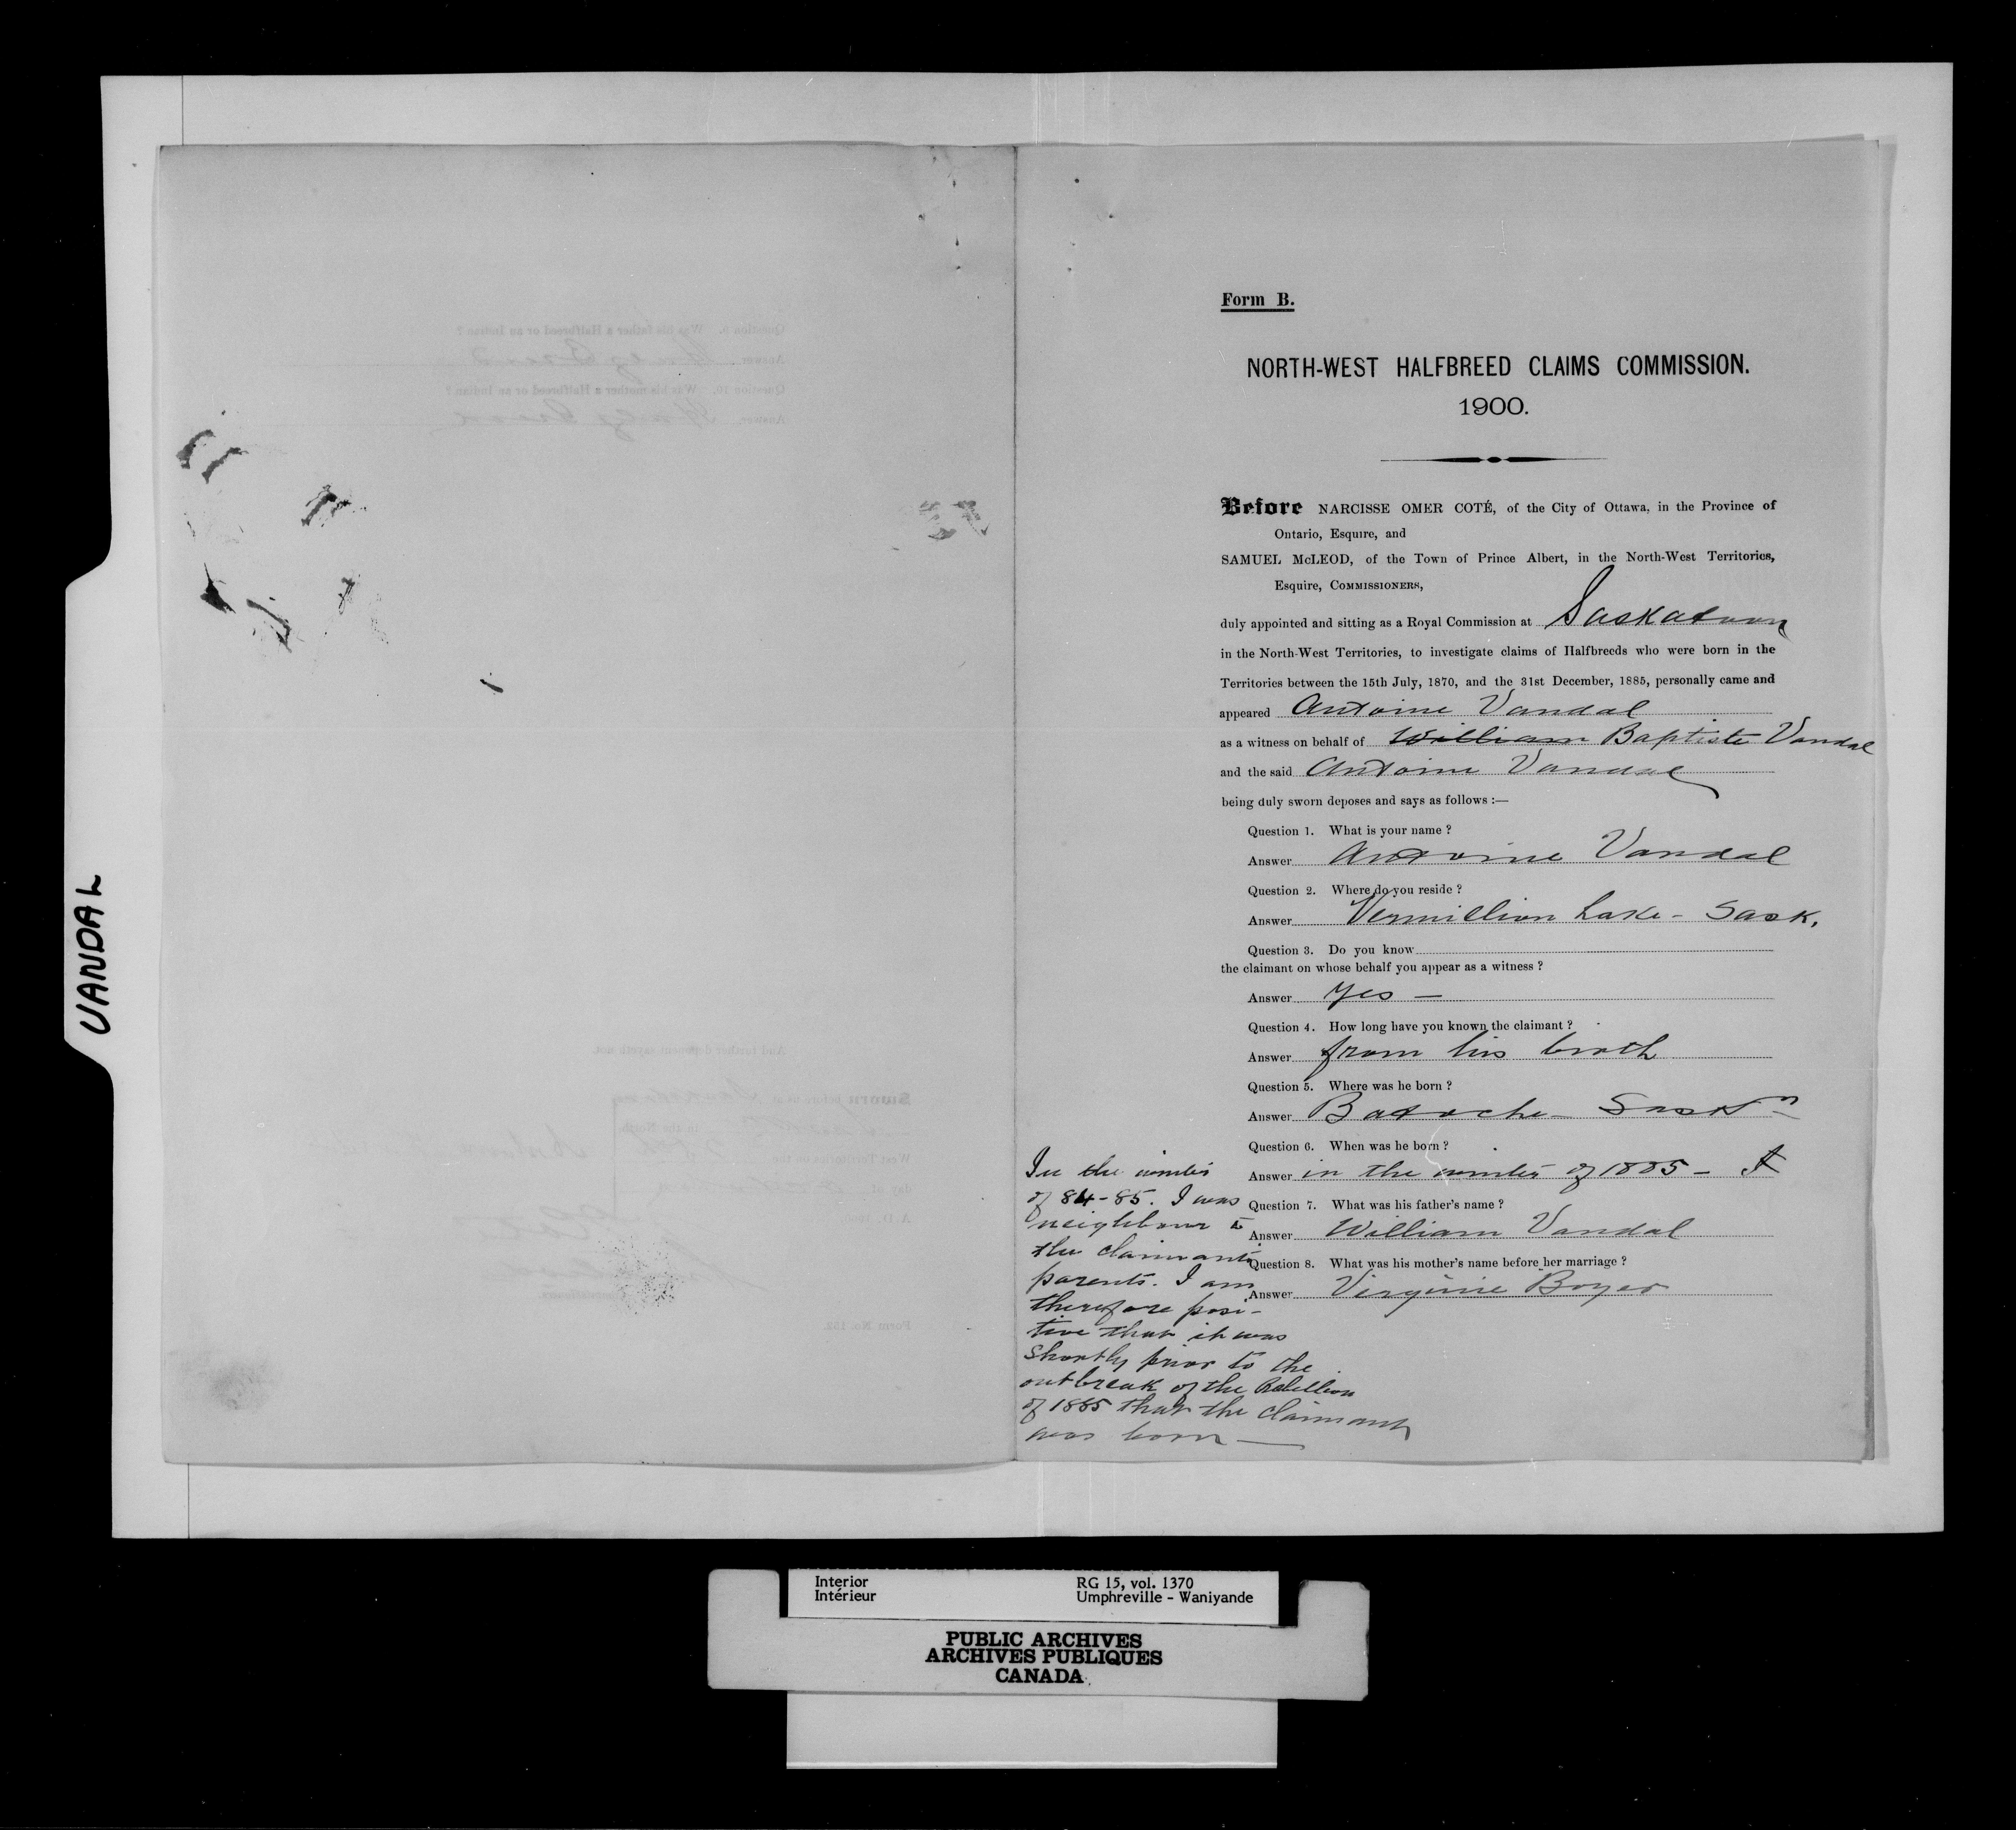 Form B.
NORTH-WEST HALFBREED CLAIMS COMMISSION.
1900.
Before NARCISSE OMER COTÉ, of the City of Ottawa, in the Province of
Ontario, Esquire, and
SAMUEL McLEOD, of the Town of Prince Albert, in the North-West Territories,
Esquire, COMMISSIONERS,
duly appointed and sitting as a Royal Commission at Saskatoon
in the North-West Territories, to investigate claims of Halfbreeds who were born in the
Territories between the 15th July, 1870, and the 31st December, 1885, personally came and
appeared Antoine Vandal
as a witness on behalf of William Baptiste Vandal
and the said Antoine Vandal
being duly sworn deposes and says as follows :—
Question 1. What is your name ?
Answer Antoine Vandal
Question 2. Where do you reside ?
Answer Vermillion Lake - Sask.
Question 3. Do you know
the claimant on whose behalf you appear as a witness ?
Answer Yes —
Question 4. How long have you known the claimant ?
Answer from his birth
Question 5. Where was he born ?
Answer Batoche - Saskn
Question 6. When was he born ?
Answer in the winter of 1885 -
Question 7. What was his father's name ?
Answer William Vandal
Question 8. What was his mother's name before her marriage ?
Answer Virginie Boyer
In the winter
of 84-85. I was
neighbour to
the claimants
parents. I am
therefore posi-
tive that it was
shortly prior to the
outbreak of the Rebellion
of 1885 that the claimant
was born —
VANDAL
Question 9. Was his father a Halfbreed or an Indian ?
Answer
Question 10. Was his mother a Halfbreed or an Indian ?
Answer
And further deponent sayeth not.
Sworn before us at
in the North-
West Territories on the
day
A.D., 1900.
Commissioners.
Form No. 152.
Interior
Intérieur
RG 15, vol. 1370
Umphreville - Waniyande
PUBLIC ARCHIVES
ARCHIVES PUBLIQUES
CANADA